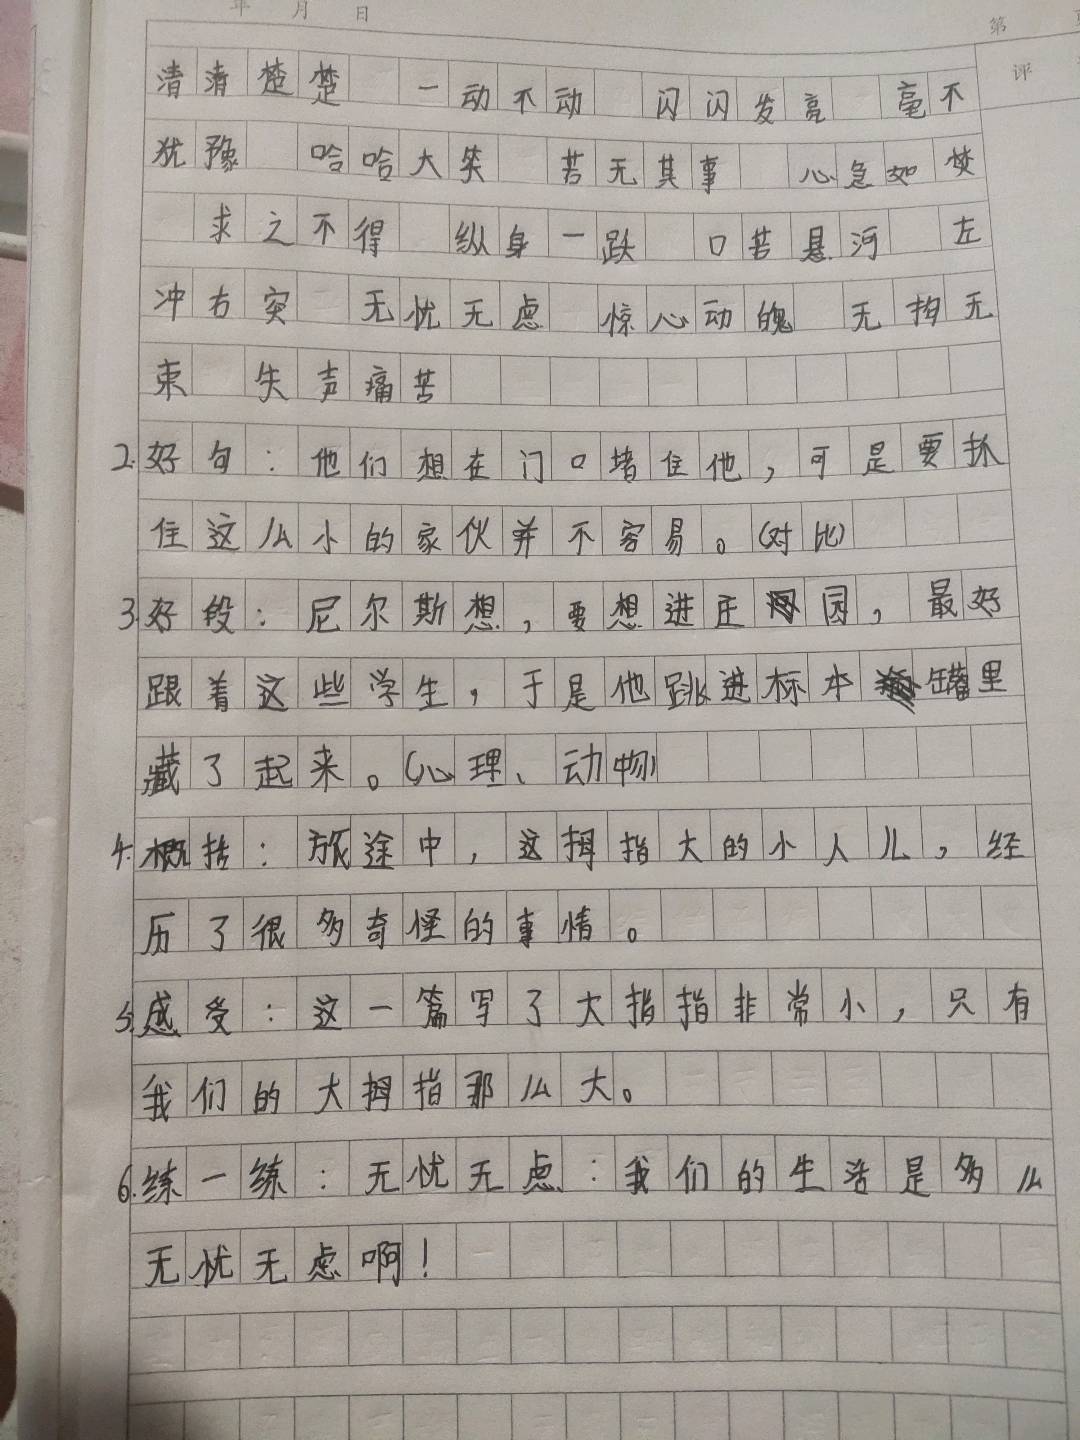 年 月 日
第
评
清清楚楚 一动不动 闪闪发亮 毫不
犹豫 哈哈大笑 若无其事 心急如焚
求之不得 纵身一跃 口若悬河 左
冲右突 无忧无虑 惊心动魄 无拘无
束 失声痛苦
2.好句：他们想在门口堵住他，可是要抓
住这么小的家伙并不容易。(对比)
3.好段：尼尔斯想，要想进庄园，最好
跟着这些学生，于是他跳进标本罐里
藏了起来。(心理、动物)
4.概括：旅途中，这拇指大的小人儿，经
历了很多奇怪的事情。
5.感受：这一篇写了大指指非常小，只有
我们的大拇指那么大。
6.练一练：无忧无虑：我们的生活是多么
无忧无虑啊！